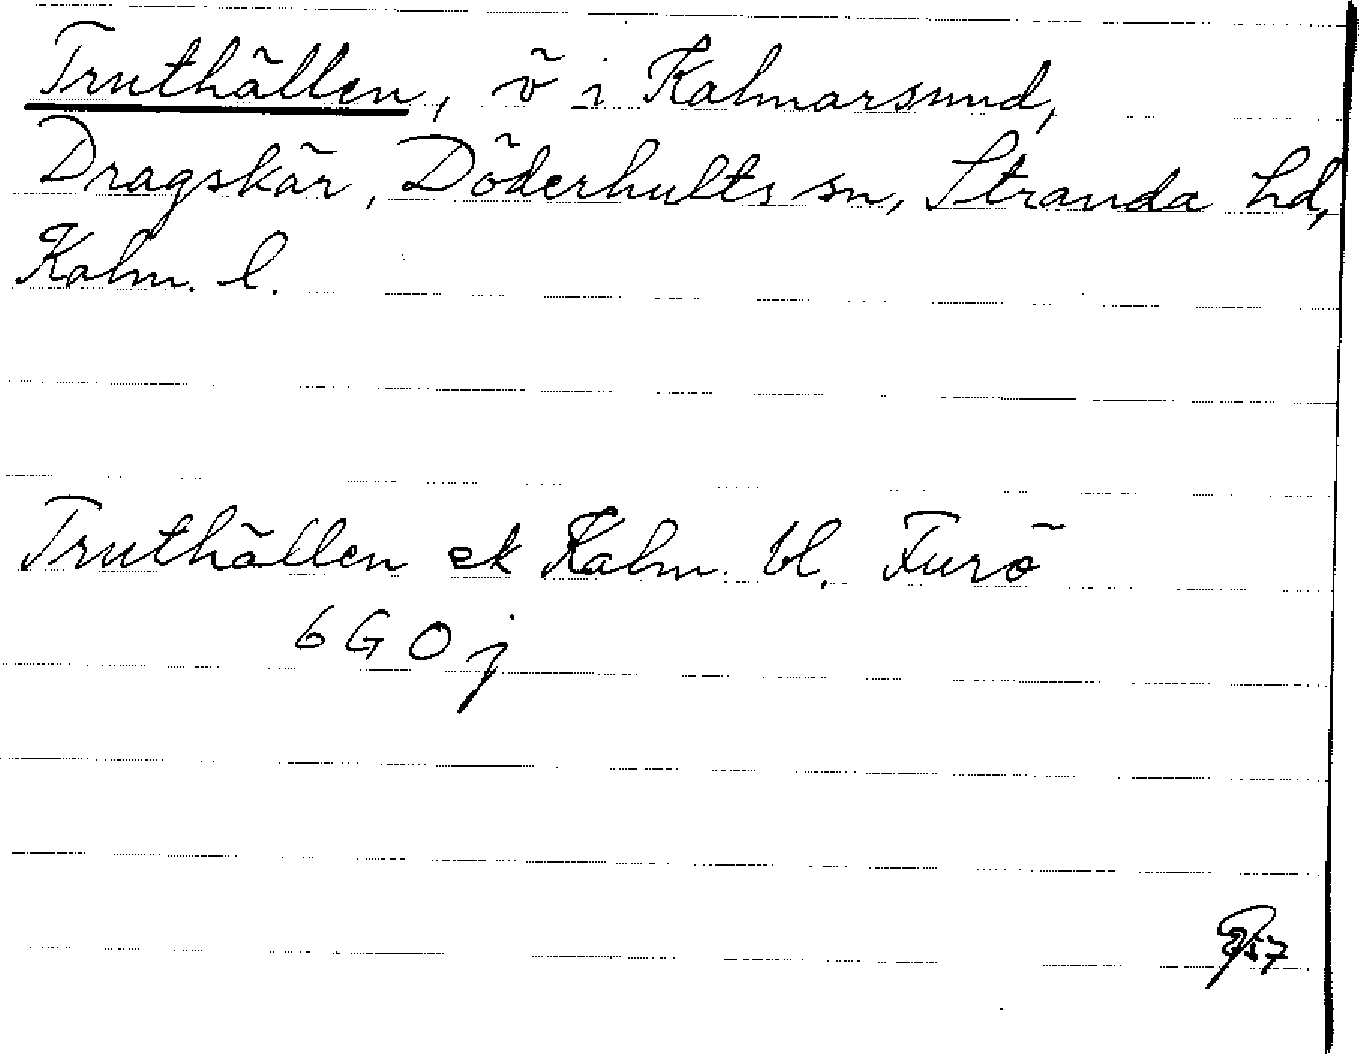 Truthällen, ö i Kalmarsund,
Dragskär, Döderhults sn, Stranda hd,
Kalm. l.
Truthällen ek Kalm. bl. Furö
6 G O j
57